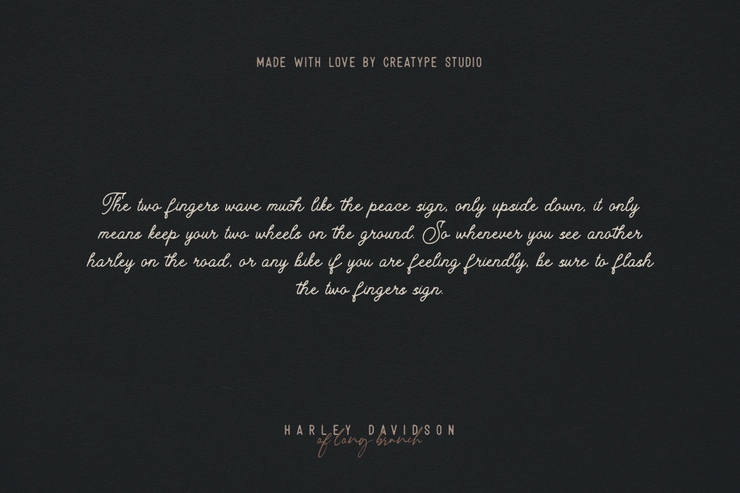 MADE WITH LOVE BY CREATYPE STUDIO
The two fingers wave much like the peace sign, only upside down, it only
means keep your two wheels on the ground. So whenever you see another
harley on the road, or any bike if you are feeling friendly, be sure to flash
the two fingers sign.
HARLEY DAVIDSON
of long branch